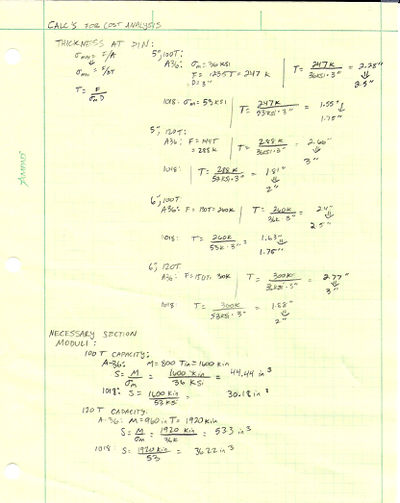 CALC'S FOR COST ANALYSIS
THICKNESS AT PIN:
σmax = F/A
σmax = F/DT
T = F/σmD
5", 100T:
A36: σm = 36 KSI
D = 3"
T = 247K/36KSI·3" = 2.28"
2.5"
1018: σm = 53 KSI
T = 247K/53KSI·3" = 1.55"
1.75"
5", 120T:
A36: F = 144T
= 288K
T = 288K/36KSI·3" = 2.66"
3"
1018: T = 288K/53KSI·3" = 1.81"
2"
6", 100T
A36: F = 130T = 260K
T = 260K/36K·3" = 2.4"
2.5"
1018: T = 260K/53K·3" = 1.63"
1.75"
6", 120T
A36: F = 150T,
T = 300K/36KSI·3" = 2.77"
3"
1018: T = 300K/53KSI·3" = 1.88"
2"
NECESSARY SECTION
MODULI:
100T CAPACITY:
A-36: M = 800 Tin = 1600 Kin
S = M/σm = 1600 Kin/36 KSI = 44.44 in³
1018: S = 1600 Kin/53 KSI = 30.18 in³
120T CAPACITY:
A-36: M = 960 in T = 1920 Kin
S = M/σm = 1920 Kin/36K = 53.3 in³
1018: S = 1920 Kin/53 = 36.22 in³